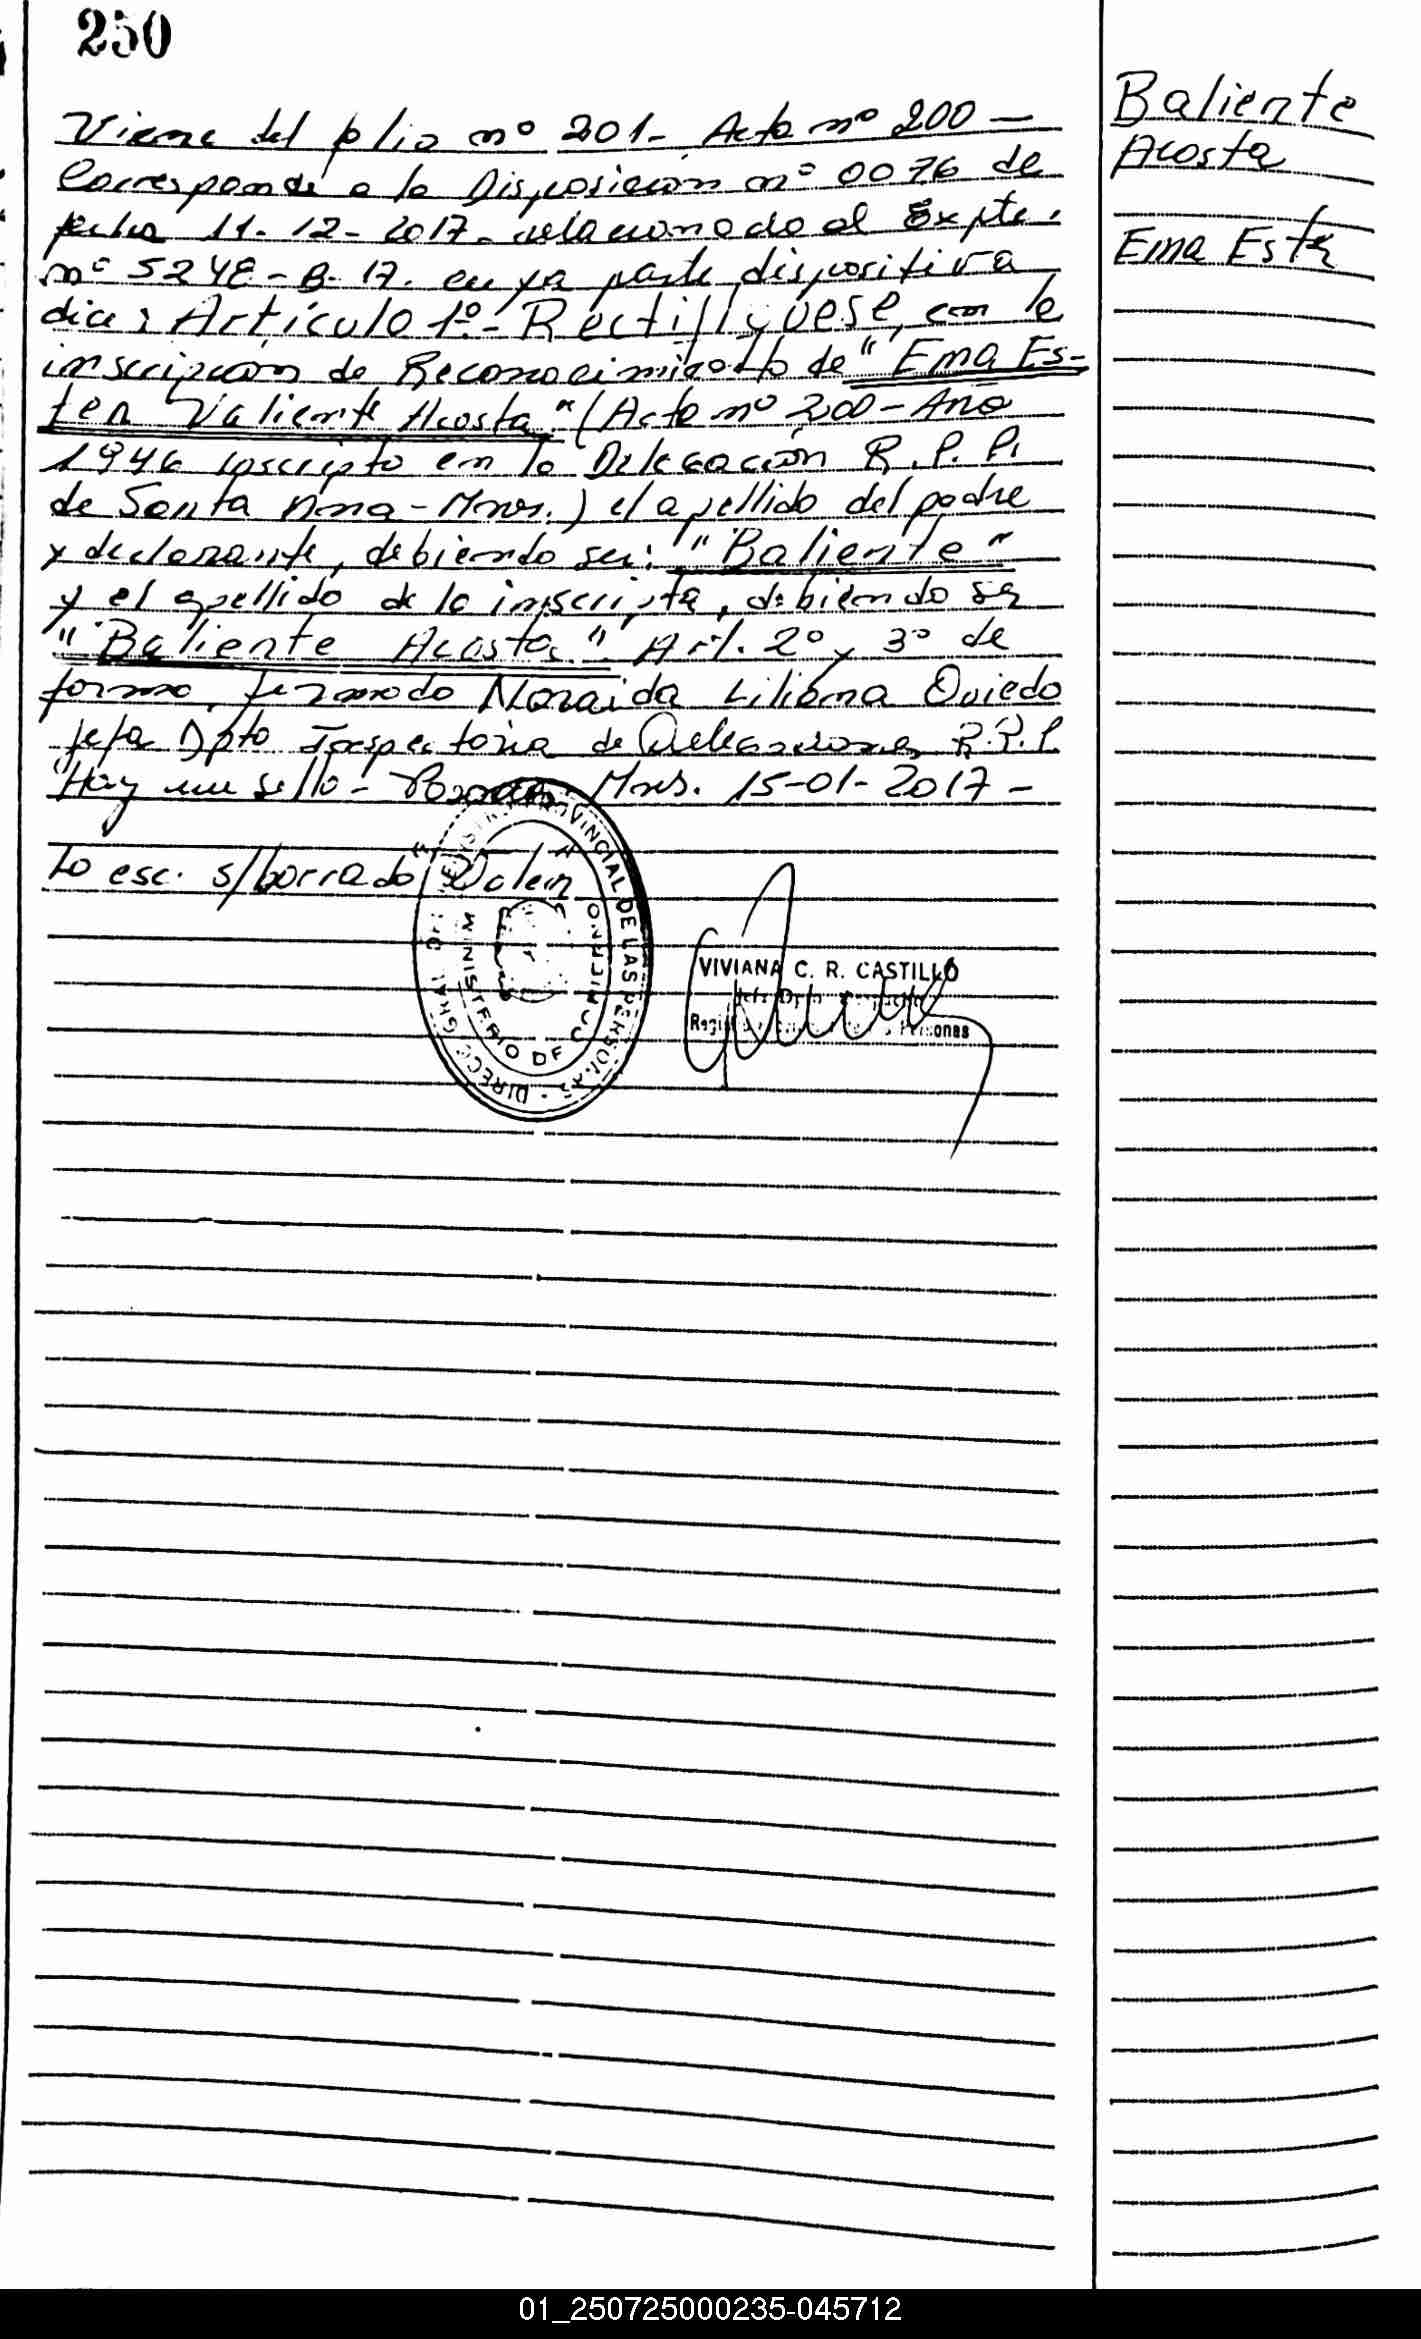 250
Viene del folio nº 201- Acta nº 200 -
Corresponde a la Disposición nº 0076 de
fecha 11-12-2017- relacionado al Expte.
nº 5248-B-17. cuya parte dispositiva
dice: Artículo 1º- Rectifíquese, en la
inscripción de Reconocimiento de "Ema Es-
ter Valiente Acosta" (Acta nº 200-Año
1946 inscripto en la Delegación R.P.P.
de Santa Ana-Mnes.) el apellido del padre
y declarante, debiendo ser: "Baliente"
y el apellido de la inscripta, debiendo ser
"Baliente Acosta" Art. 2º y 3º de
forma, firmado Noraida Liliana Oviedo
Jefa Dpto Inspectoria de Delegaciones R.P.P.
Hay un sello- Mnes. 15-01-2017 -
Lo esc. s/borrado Valen
PROVINCIAL DE LAS PERSONAS
MINISTERIO DE GOBIERNO
VIVIANA C. R. CASTILLO
Baliente
Acosta
Ema Ester
01_250725000235-045712